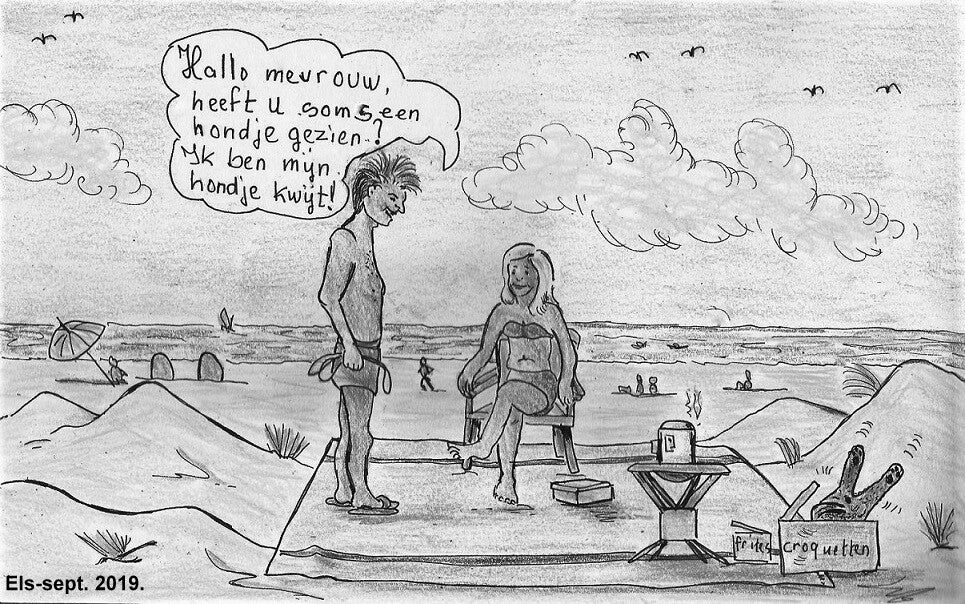 Hallo mevrouw,
heeft u soms een
hondje gezien?
Ik ben mijn
hondje kwijt!
frites
croquetten
Els-sept. 2019.